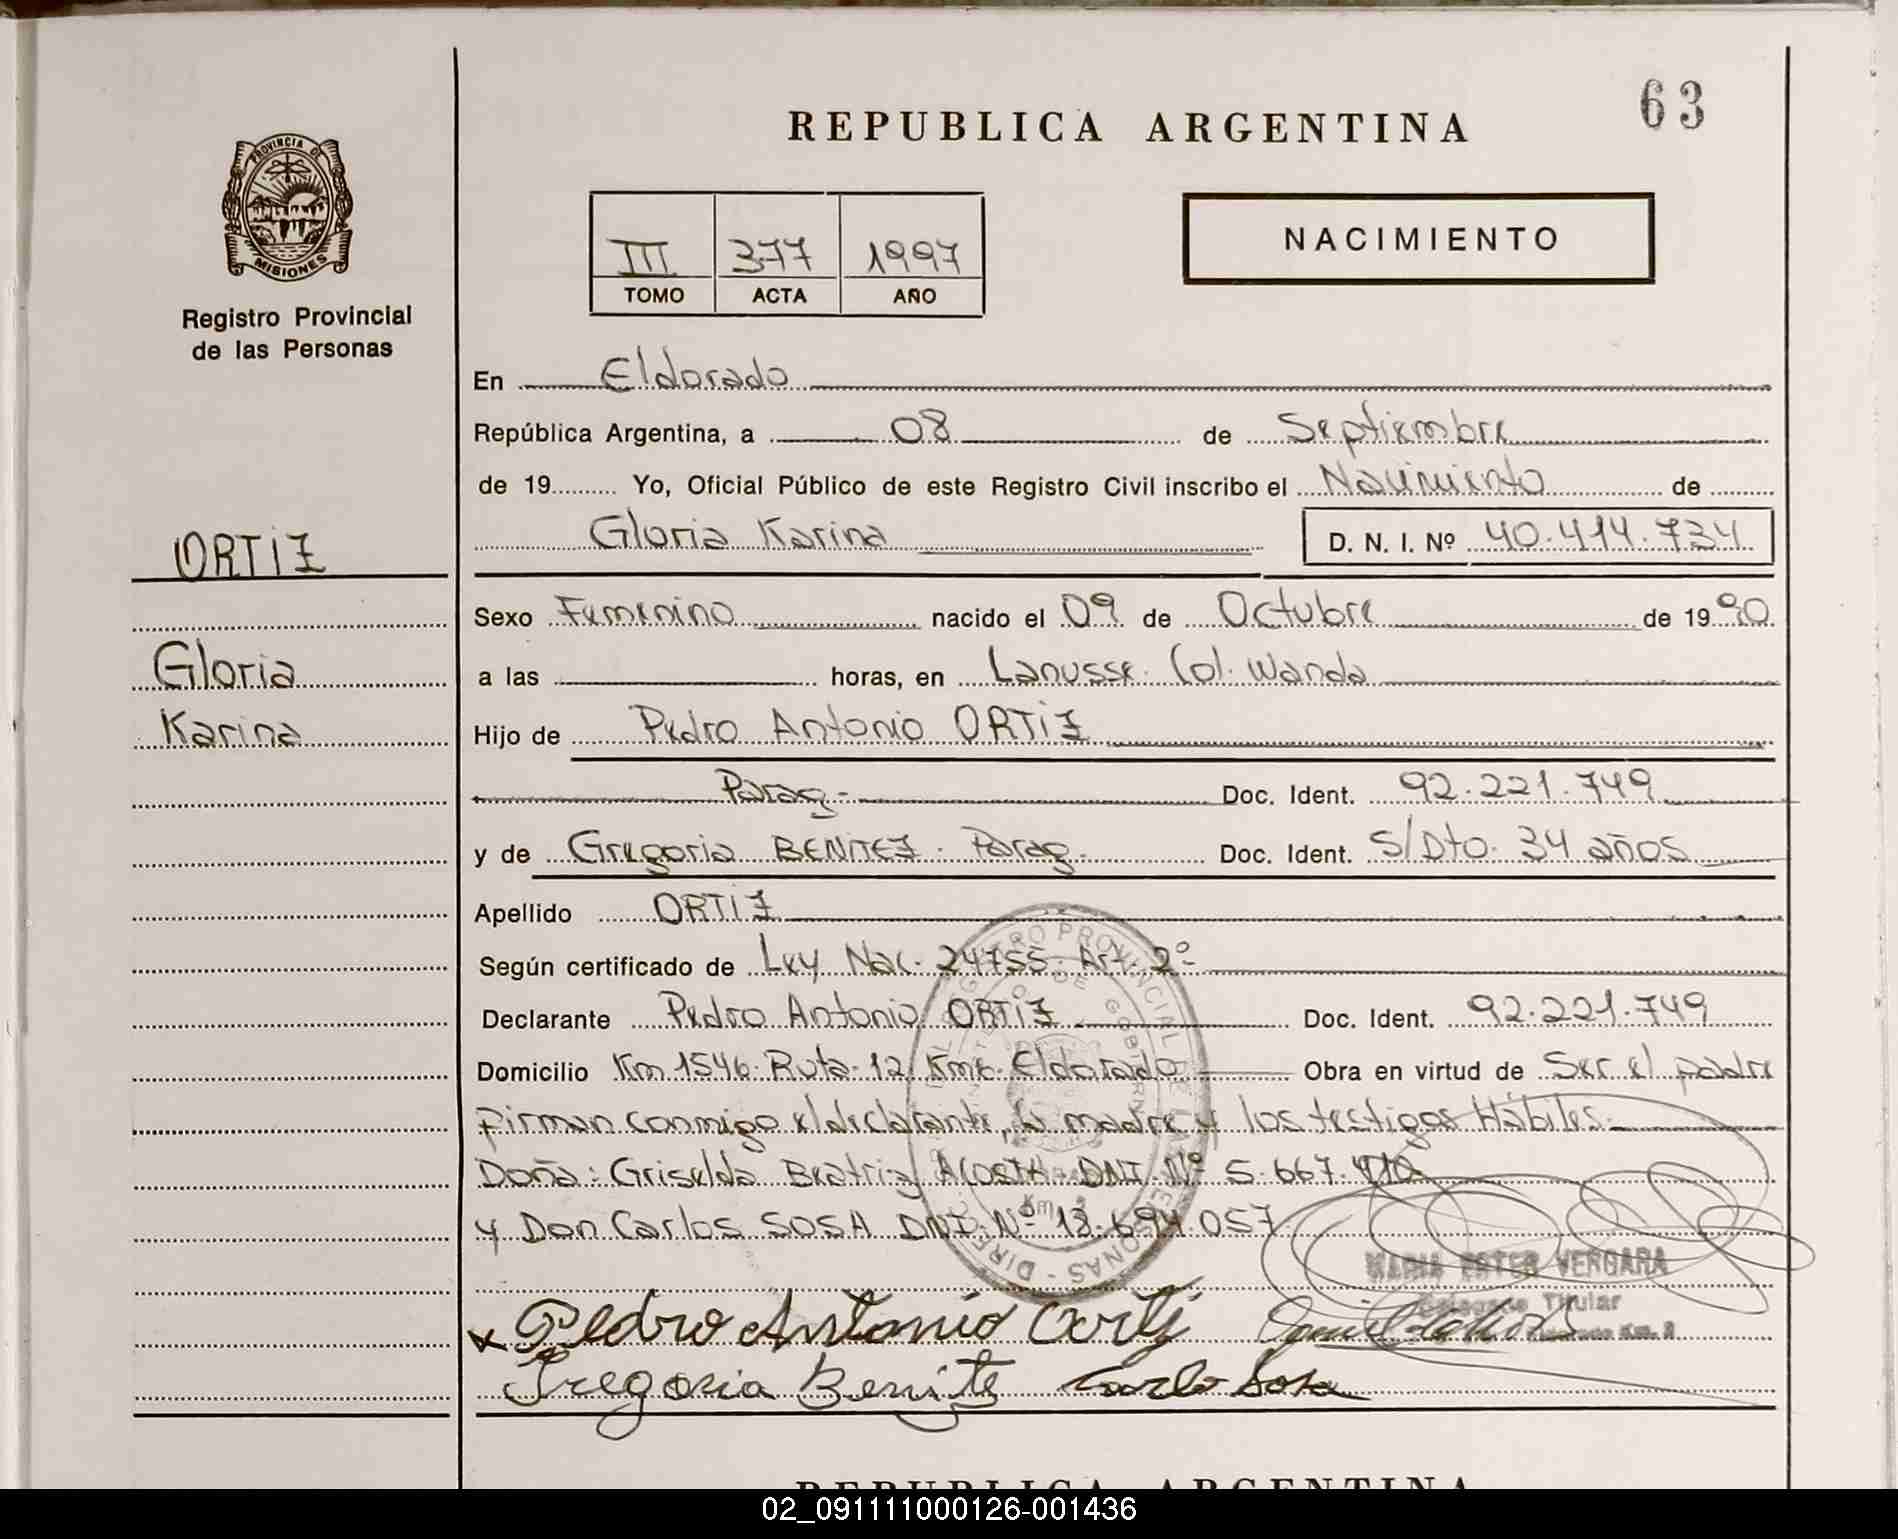 63
REPUBLICA ARGENTINA
PROVINCIA DE
MISIONES
Registro Provincial
de las Personas
NACIMIENTO
III 377 1997
TOMO ACTA AÑO
En Eldorado
República Argentina, a 08 de Septiembre
de 19 Yo, Oficial Público de este Registro Civil inscribo el Nacimiento de
Gloria Karina D. N. I. Nº 40.414.734
ORTIZ
Gloria
Karina
Sexo Femenino nacido el 09 de Octubre de 1990
a las horas, en Lanusse. Col. Wanda
Hijo de Pedro Antonio ORTIZ
Parag- Doc. Ident. 92.221.749
y de Gregoria BENITEZ. Parag. Doc. Ident. S/Dto. 34 años
Apellido ORTIZ
Según certificado de Ley Nac. 24755. Art. 2º
Declarante Pedro Antonio ORTIZ Doc. Ident. 92.221.749
Domicilio Km 1546. Ruta. 12 Eldorado Obra en virtud de Ser el padre
firman conmigo el declarante, la madre y los testigos Hábiles.
Doña: Griselda Beatriz ACOSTA DNI. Nº 5.667.
y Don Carlos SOSA DNI. Nº 694.057
MARIA ESTER VERGARA
Delegada Titular
Eldorado Km. 2
x Pedro Antonio Ortiz
Gregoria Benitez Carlo Sosa
REPUBLICA ARGENTINA
02_091111000126-001436